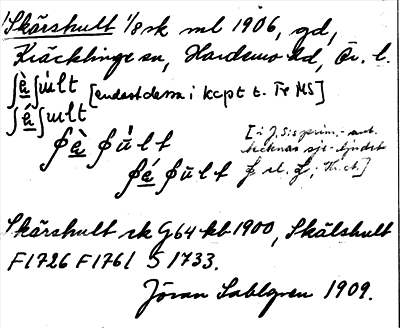 Skärshult 1/8 sk ml 1906, gd,
Kräcklinge sn, Hardemo hd, Ör. l.
ʃä̀ʃu̇lt [endast dessa i kapt t. Fr MS]
ʃä́ʃult
ʄä̀ ʄu̇lt [i J.S:s prim.-ant.
tecknas sje-ljudet
ʄä́ ʄult
Skärshult sk G64 kb 1900, Skälshult
F1726 F1761 S 1733.
Jöran Sahlgren 1909.